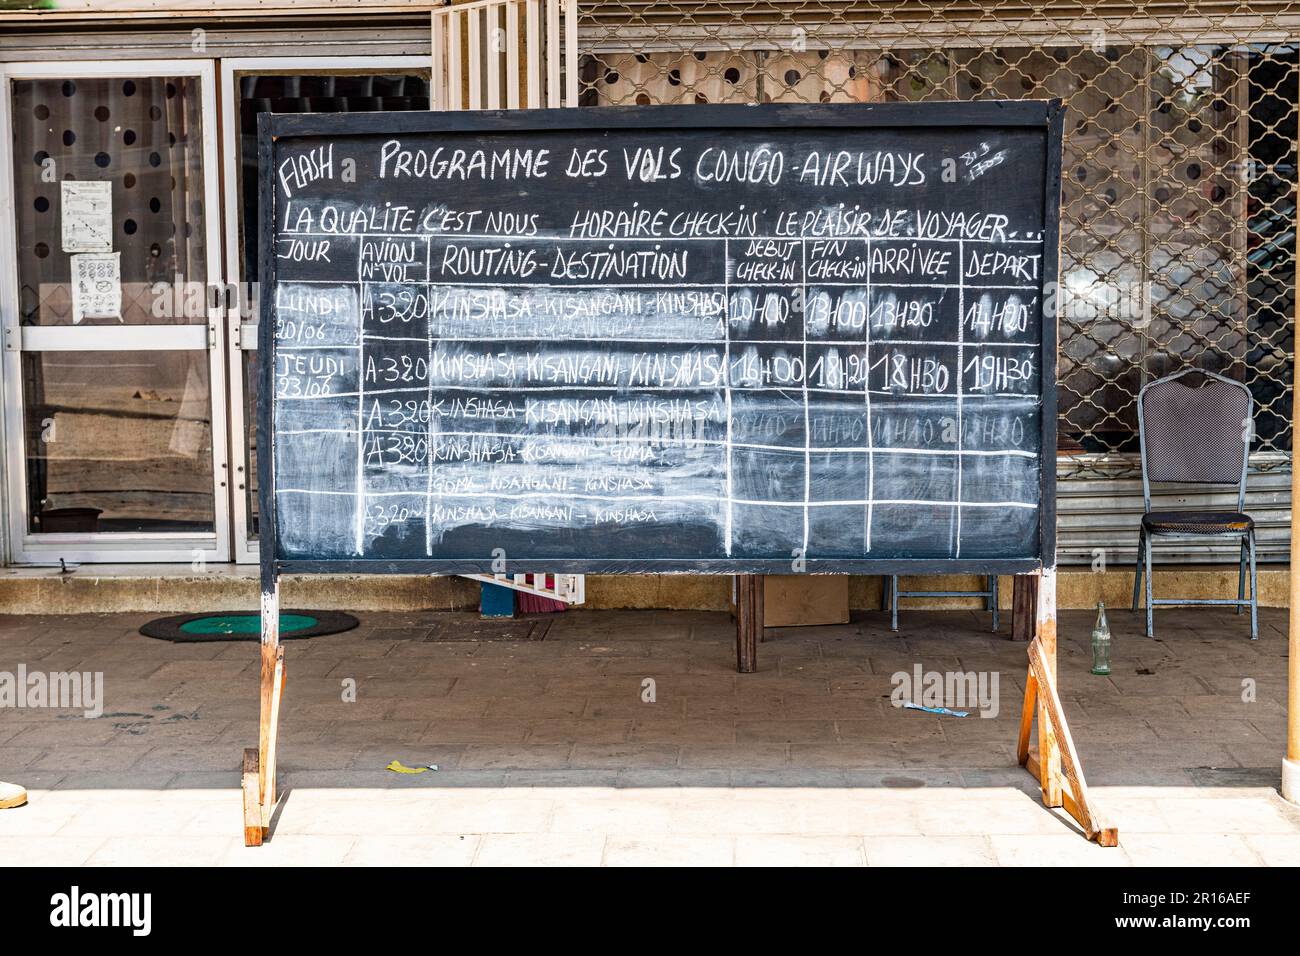 FLASH PROGRAMME DES VOLS CONGO-AIRWAYS
LA QUALITE C'EST NOUS HORAIRE CHECK-IN LE PLAISIR DE VOYAGER...
JOUR AVION N° VOL ROUTING-DESTINATION DEBUT CHECK-IN FIN CHECK-IN ARRIVEE DEPART
LUNDI 20/06 A-320 KINSHASA-KISANGANI-KINSHASA 10H00 13H00 13H20' 14H20'
JEUDI 23/06 A-320 KINSHASA-KISANGANI-KINSHASA 16H00 18H20 18H30 19H30'
A-320 KINSHASA-KISANGANI-KINSHASA
A-320 KINSHASA-KISANGANI-GOMA
GOMA KISANGANI KINSHASA
A320~ KINSHASA-KISANGANI-KINSHASA
alamy
Image ID: 2R16AEF
www.alamy.com